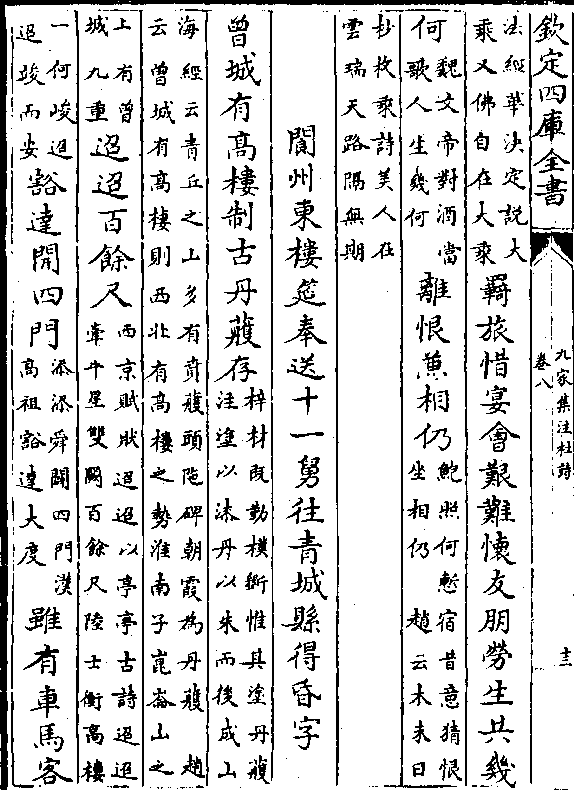 欽定四庫全書
九家集注杜詩
卷八
十三
法經華決定説大
乘又佛自在大乘
羇旅惜宴會艱難懷友朋勞生共幾
何
魏文帝對酒當
歌人生幾何
離恨兼相仍
鮑照何慙宿昔意猜恨
坐相仍 趙云木末日
杪枚乘詩美人在
雲瑞天路隔無期
閬州東樓筵奉送十一舅往青城縣得昏字
曾城有高樓制古丹雘存
梓材既勤樸斵惟其塗丹雘
注塗以漆丹以朱而後成山
海經云青丘之山多有賁雘頭陁碑朝霞為丹雘 趙
云曾城有高樓則西北有高樓之勢淮南子崑崙山之
上有曾
城九重
迢迢百餘尺
西京賦狀迢迢以亭亭古詩迢迢
牽牛星雙闕百餘尺陸士衡高樓
一何峻迢
迢竣而安
豁達開四門
添添舜闢四門漢
高祖豁達大度
雖有車馬客